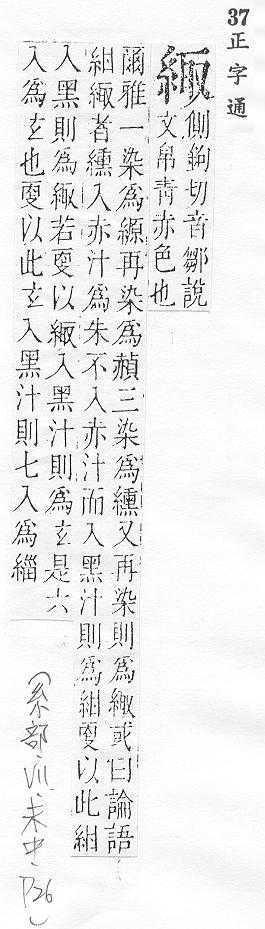 37正字通
緅
側鉤切音鄒說
文帛青赤色也
爾雅一染為縓再染為赬三染為纁又再染則為緅或曰論語
紺緅者纁入赤汁為朱不入赤汁而入黑汁則為紺更以此紺
入黑則為緅若更以緅入黑汁則為玄是六
入為玄也更以此玄入黑汁則七入為緇
(糸部‧VII‧未中‧P26)